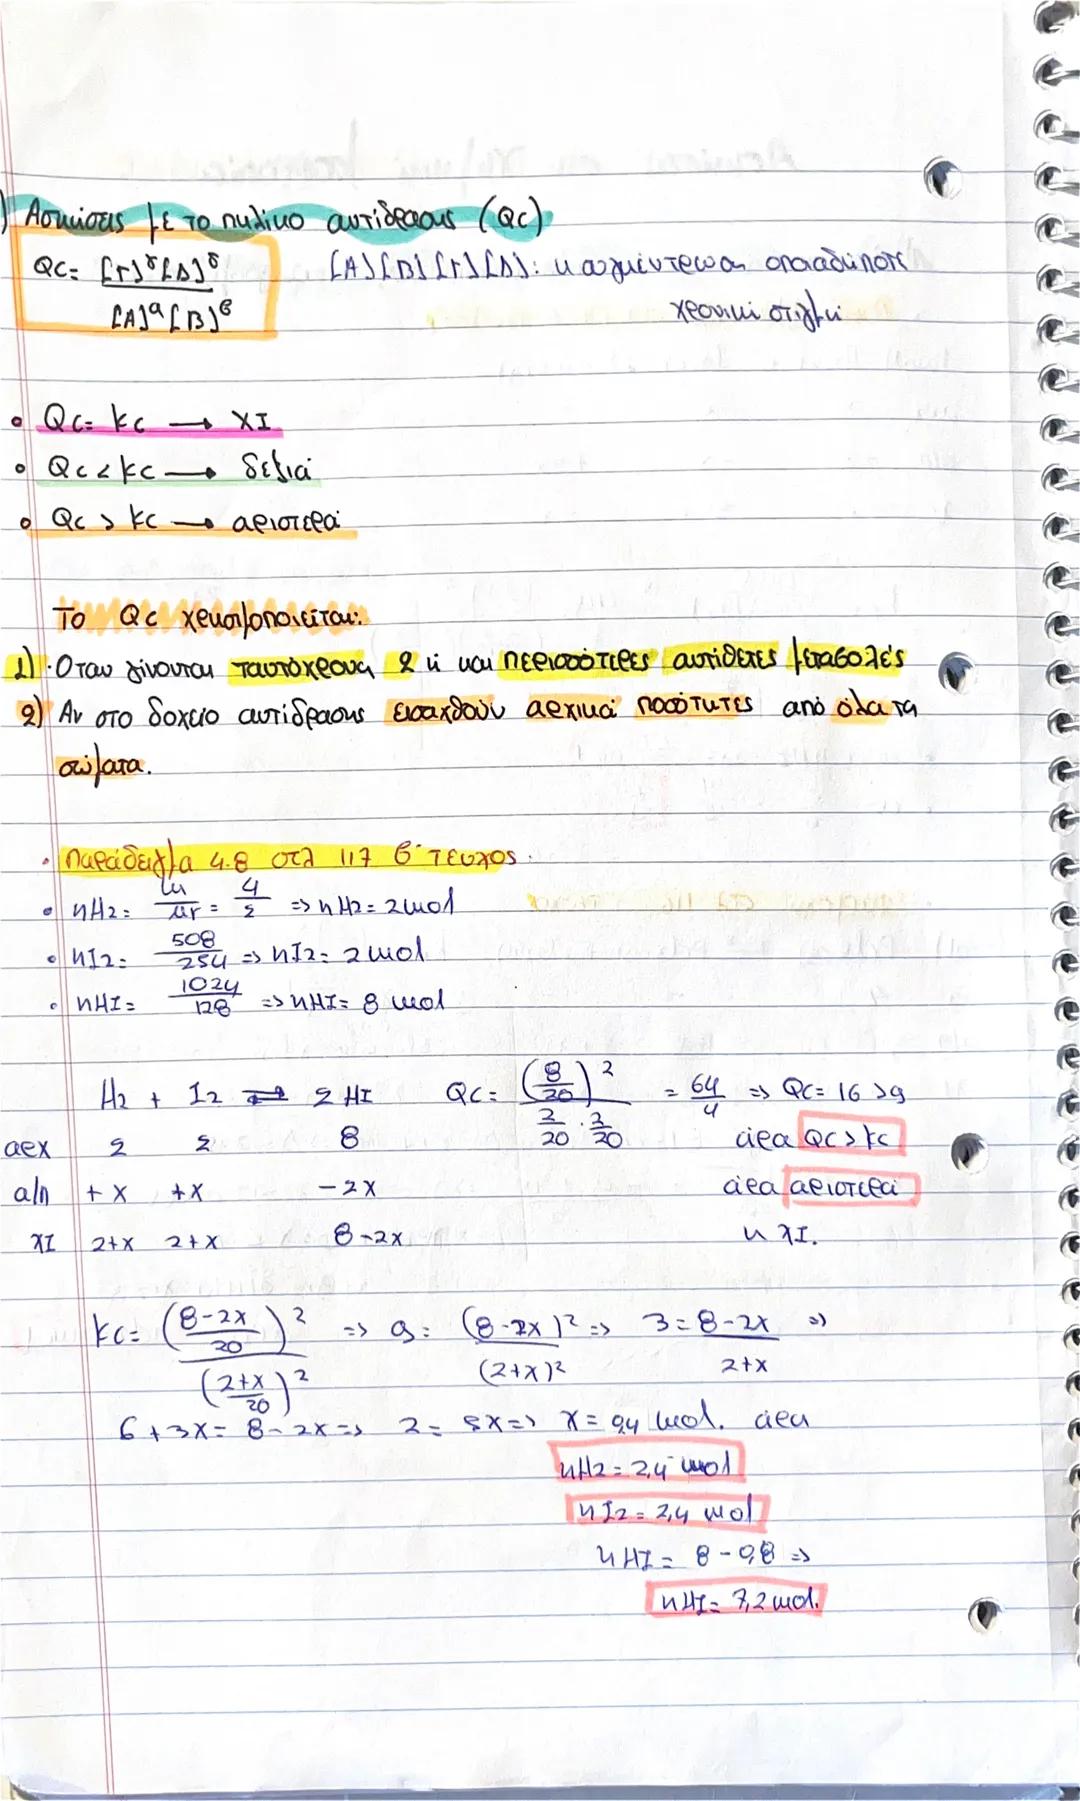 ) Ασκήσεις με το πηλίκο αντίδρασης (Qc)
Qc= [Γ]^γ [Δ]^δ / [A]^α [B]^β
[A] [B] [Γ] [Δ]: η συγκέντρωση οποιαδήποτε χρονική στιγμή
• Qc= Kc → ΧΙ
• Qc < Kc → δεξιά
• Qc > Kc → αριστερά
Το Qc χρησιμοποιείται:
1) · Όταν γίνονται ταυτόχρονα 2 ή και περισσότερες αντίθετες μεταβολές
2) Αν στο δοχείο αντίδρασης εισαχθούν αρχικά ποσότητες από όλα τα
σώματα.
· Παράδειγμα 4.8 σελ 117 β' τεύχος.
• nH2= m/Mr = 4/2 => nH2= 2mol
• nI2= 508/254 => nI2= 2 mol
• nHI= 1024/128 => nHI= 8 mol
H2 + I2 ⇌ 2 HI Qc= (8/20)² / (2/20 · 2/20) = 64/4 => Qc= 16 > 9
αρχ 2 2 8 άρα Qc > Kc
α/π + x +x -2x άρα αριστερά
ΧΙ 2+x 2+x 8-2x η ΧΙ.
Kc= ((8-2x)/20)² / ((2+x)/20)² => 9= (8-2x)² / (2+x)² => 3= 8-2x / 2+x =>
6+3x= 8-2x => 2= 5x => x= 0,4 mol. άρα
nH2= 2,4 mol
nI2= 2,4 mol
nHI= 8-0,8 =>
nHI= 7,2 mol.